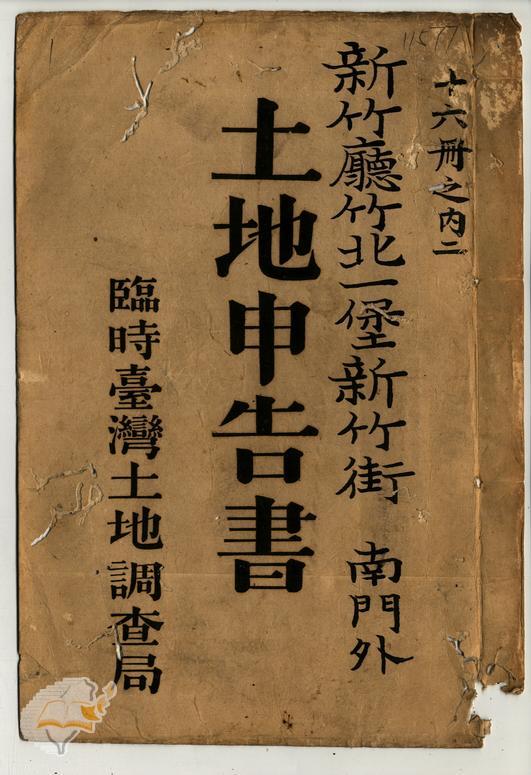 11577
十六冊之内二
新竹廳竹北一堡新竹街 南門外
土地申告書
臨時臺灣土地調查局